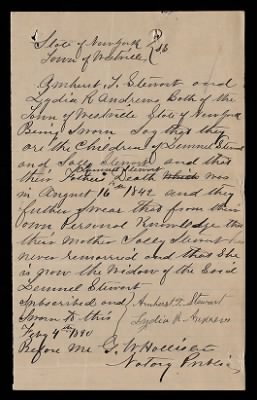 State of New York } ss
Town of Westville
Amherst T. Stewart and
Lydia R Andrews Both of the
Town of Westville State of New York
Being Sworn Say that they
are the Children of Lemuel Stewart
and Sally Stewart and that
their Father Lemuel Stewart Death which was
in August 16th 1842 and they
further Swear that from their
own Personal Knowledge that
their Mother Sally Stewart has
never remarried and that She
is now the Widow of the Said
Lemuel Stewart
Subscribed and
Sworn to this
Feby 4th 1880
Amherst T. Stewart
Lydia R. Andrews
Before me G. W Hollister
Notary Public